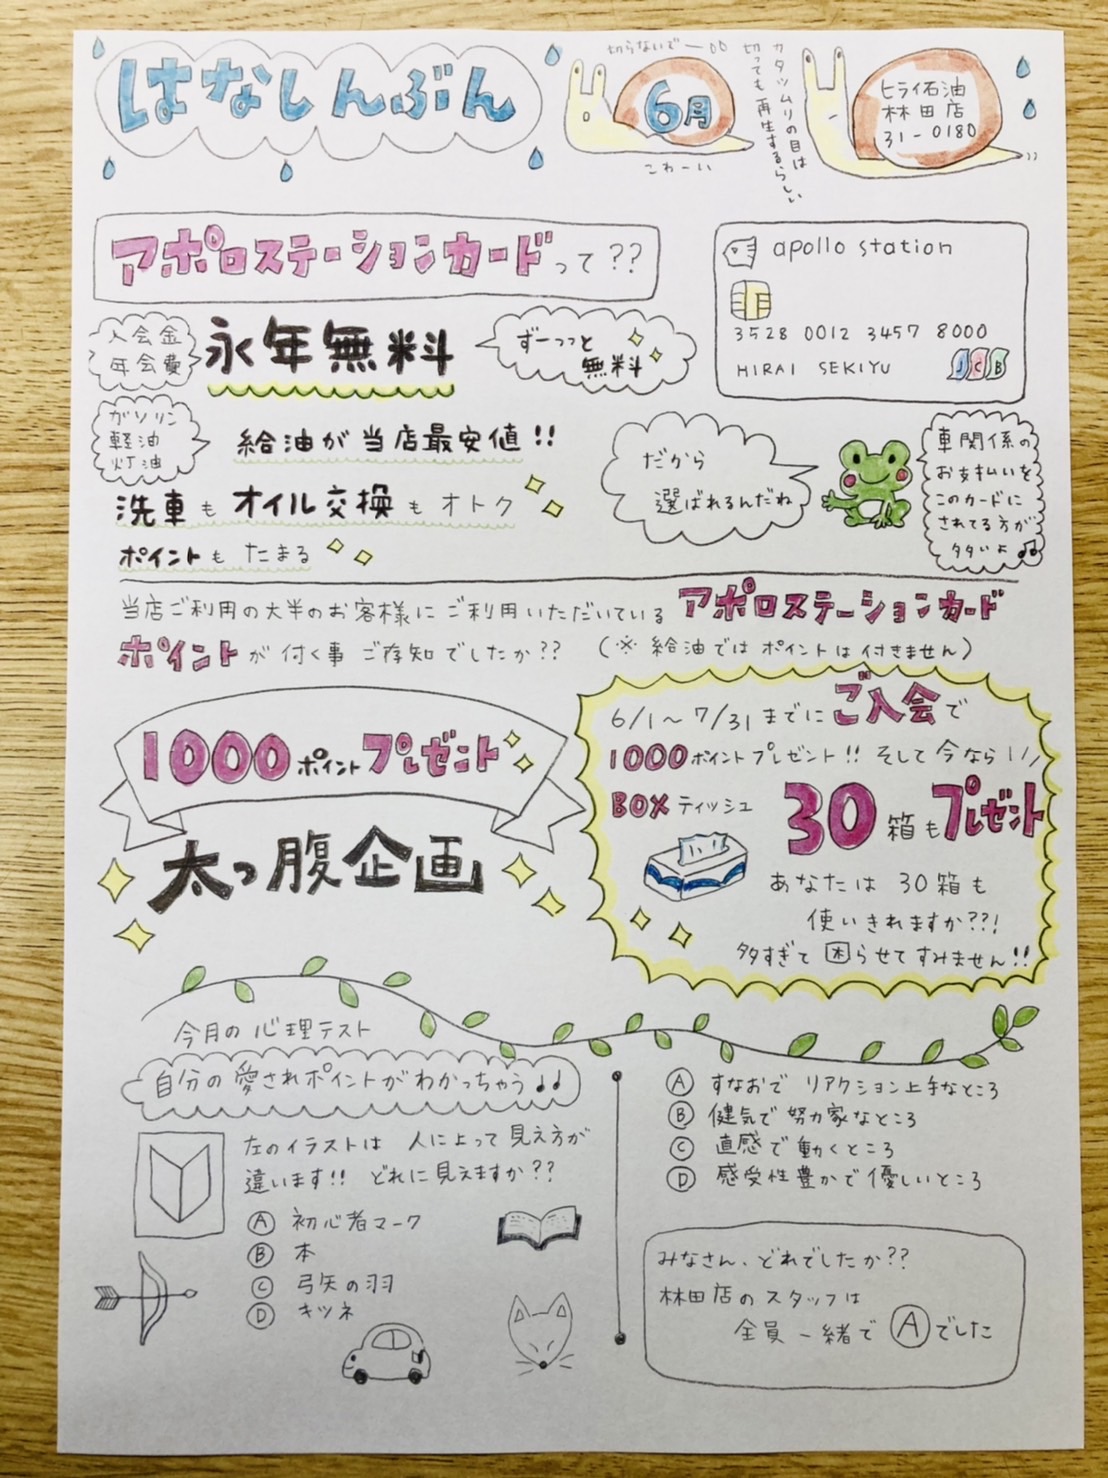 はなしんぶん
切らないでー
6月
こわーい
カタツムリの目は
切っても再生するらしい
ヒライ石油
林田店
31-0180
アポロステーションカードって??
apollo station
3528 0012 3457 8000
HIRAI SEKIYU
JCB
入会金
年会費
永年無料
ずーっっと
無料
ガソリン
軽油
灯油
給油が当店最安値!!
洗車もオイル交換もオトク
ポイントもたまる
だから
選ばれるんだね
車関係の
お支払いを
このカードに
されてる方が
多いよ♫
当店ご利用の大半のお客様にご利用いただいているアポロステーションカード
ポイントが付く事ご存知でしたか?? (※給油ではポイントは付きません)
1000ポイントプレゼント
太っ腹企画
6/1〜7/31までにご入会で
1000ポイントプレゼント!! そして今なら
BOXティッシュ
30箱もプレゼント
あなたは30箱も
使いきれますか??!
多すぎて困らせてすみません!!
今月の心理テスト
自分の愛されポイントがわかっちゃう♩♩
左のイラストは 人によって見え方が
違います!! どれに見えますか??
Ⓐ 初心者マーク
Ⓑ 本
Ⓒ 弓矢の羽
Ⓓ キツネ
Ⓐ すなおで リアクション上手なところ
Ⓑ 健気で努力家なところ
Ⓒ 直感で動くところ
Ⓓ 感受性豊かで優しいところ
みなさん、どれでしたか??
林田店のスタッフは
全員一緒でⒶでした